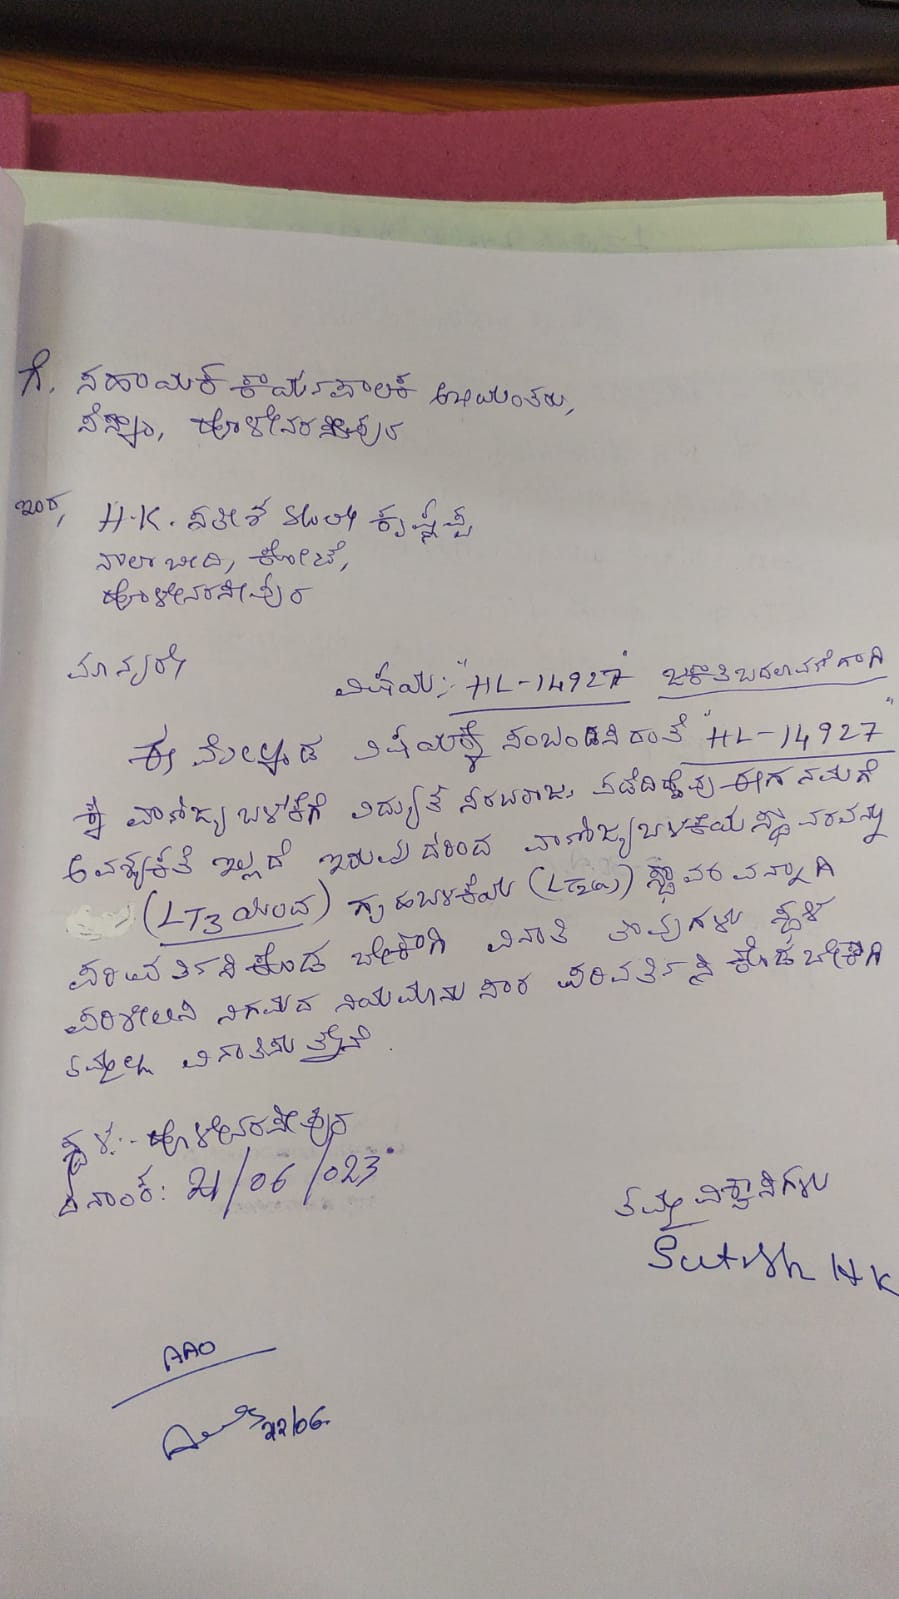 ಗೆ. ಸಹಾಯಕ ಕಾರ್ಯಪಾಲಕ ಅಭಿಯಂತರು,
ಹೊಳೇನರಸೀಪುರ
ಇಂದ, H.K. ಸತೀಶ ಕೃಷ್ಣಪ್ಪ
ಬೀದಿ, ಕೋಟೆ,
ಹೊಳೇನರಸೀಪುರ
ಮಾನ್ಯರೇ
ವಿಷಯ:- "HL-14927" ಜಕಾತಿ ಬದಲಾವಣೆಗಾಗಿ
ಈ ಮೇಲ್ಕಂಡ ವಿಷಯಕ್ಕೆ ಸಂಬಂಧಿಸಿದಂತೆ "HL-14927"
ಕ್ಕೆ ವಾಣಿಜ್ಯ ಬಳಕೆಗೆ ವಿದ್ಯುತ್ ಸರಬರಾಜು ಪಡೆದಿದ್ದೆವು ಈಗ ನಮಗೆ
ಅವಶ್ಯಕತೆ ಇಲ್ಲದೆ ಇರುವುದರಿಂದ ವಾಣಿಜ್ಯ ಬಳಕೆಯ ಸ್ಥಾವರವನ್ನು
(LT3 ಯಿಂದ) ಗೃಹಬಳಕೆಯ (LT2a) ಸ್ಥಾವರವನ್ನಾಗಿ
ಪರಿವರ್ತಿಸಿಕೊಡಬೇಕಾಗಿ ವಿನಂತಿ ತಾವುಗಳು ಸ್ಥಳ
ಪರಿಶೀಲಿಸಿ ನಿಗಮದ ನಿಯಮಾನುಸಾರ ಪರಿವರ್ತಿಸಿ ಕೊಡಬೇಕಾಗಿ
ತಮ್ಮಲ್ಲಿ ವಿನಂತಿಸುತ್ತೇನೆ.
ಸ್ಥಳ:- ಹೊಳೇನರಸೀಪುರ
ದಿನಾಂಕ: 21/06/023
ತಮ್ಮ ವಿಶ್ವಾಸಿಗಳು
Satish H K
AAO
22/06